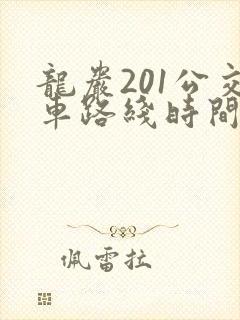 龍巖201公交
車路綫時間
佩雷拉